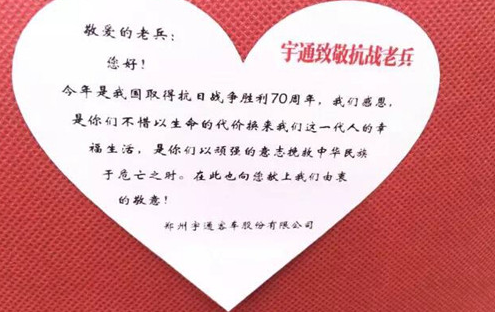 敬爱的老兵：
宇通致敬抗战老兵
您好！
今年是我国取得抗日战争胜利70周年，我们感恩，
是你们不惜以生命的代价换来我们这一代人的幸
福生活，是你们以顽强的意志挽救中华民族
于危亡之时。在此也向您献上我们由衷
的敬意！
郑州宇通客车股份有限公司